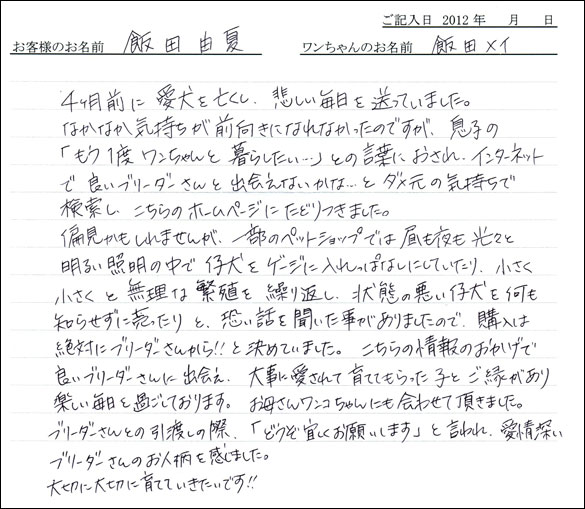 ご記入日 2012年 月 日
お客様のお名前 飯田由夏 ワンちゃんのお名前 飯田メイ
4ヶ月前に愛犬を亡くし、悲しい毎日を送っていました。
なかなか気持ちが前向きになれなかったのですが、息子の
「もう1度ワンちゃんと暮らしたい…」との言葉におされ、インターネット
で良いブリーダーさんと出会えないかな…とダメ元の気持ちで
検索し、こちらのホームページにたどりつきました。
偏見かもしれませんが、一部のペットショップでは昼も夜も光々と
明るい照明の中で仔犬をゲージに入れっぱなしにしていたり、小さく
小さくと無理な繁殖を繰り返し、状態の悪い仔犬を何も
知らせずに売ったりと、恐い話を聞いた事がありましたので、購入は
絶対にブリーダーさんから!!と決めていました。こちらの情報のおかげで
良いブリーダーさんに出会え、大事に愛されて育ててもらった子とご縁があり
楽しい毎日を過ごしております。お母さんワンコちゃんにも会わせて頂きました。
ブリーダーさんとの引渡しの際、「どうぞ宜しくお願いします」と言われ、愛情深い
ブリーダーさんのお人柄を感じました。
大切に大切に育てていきたいです!!